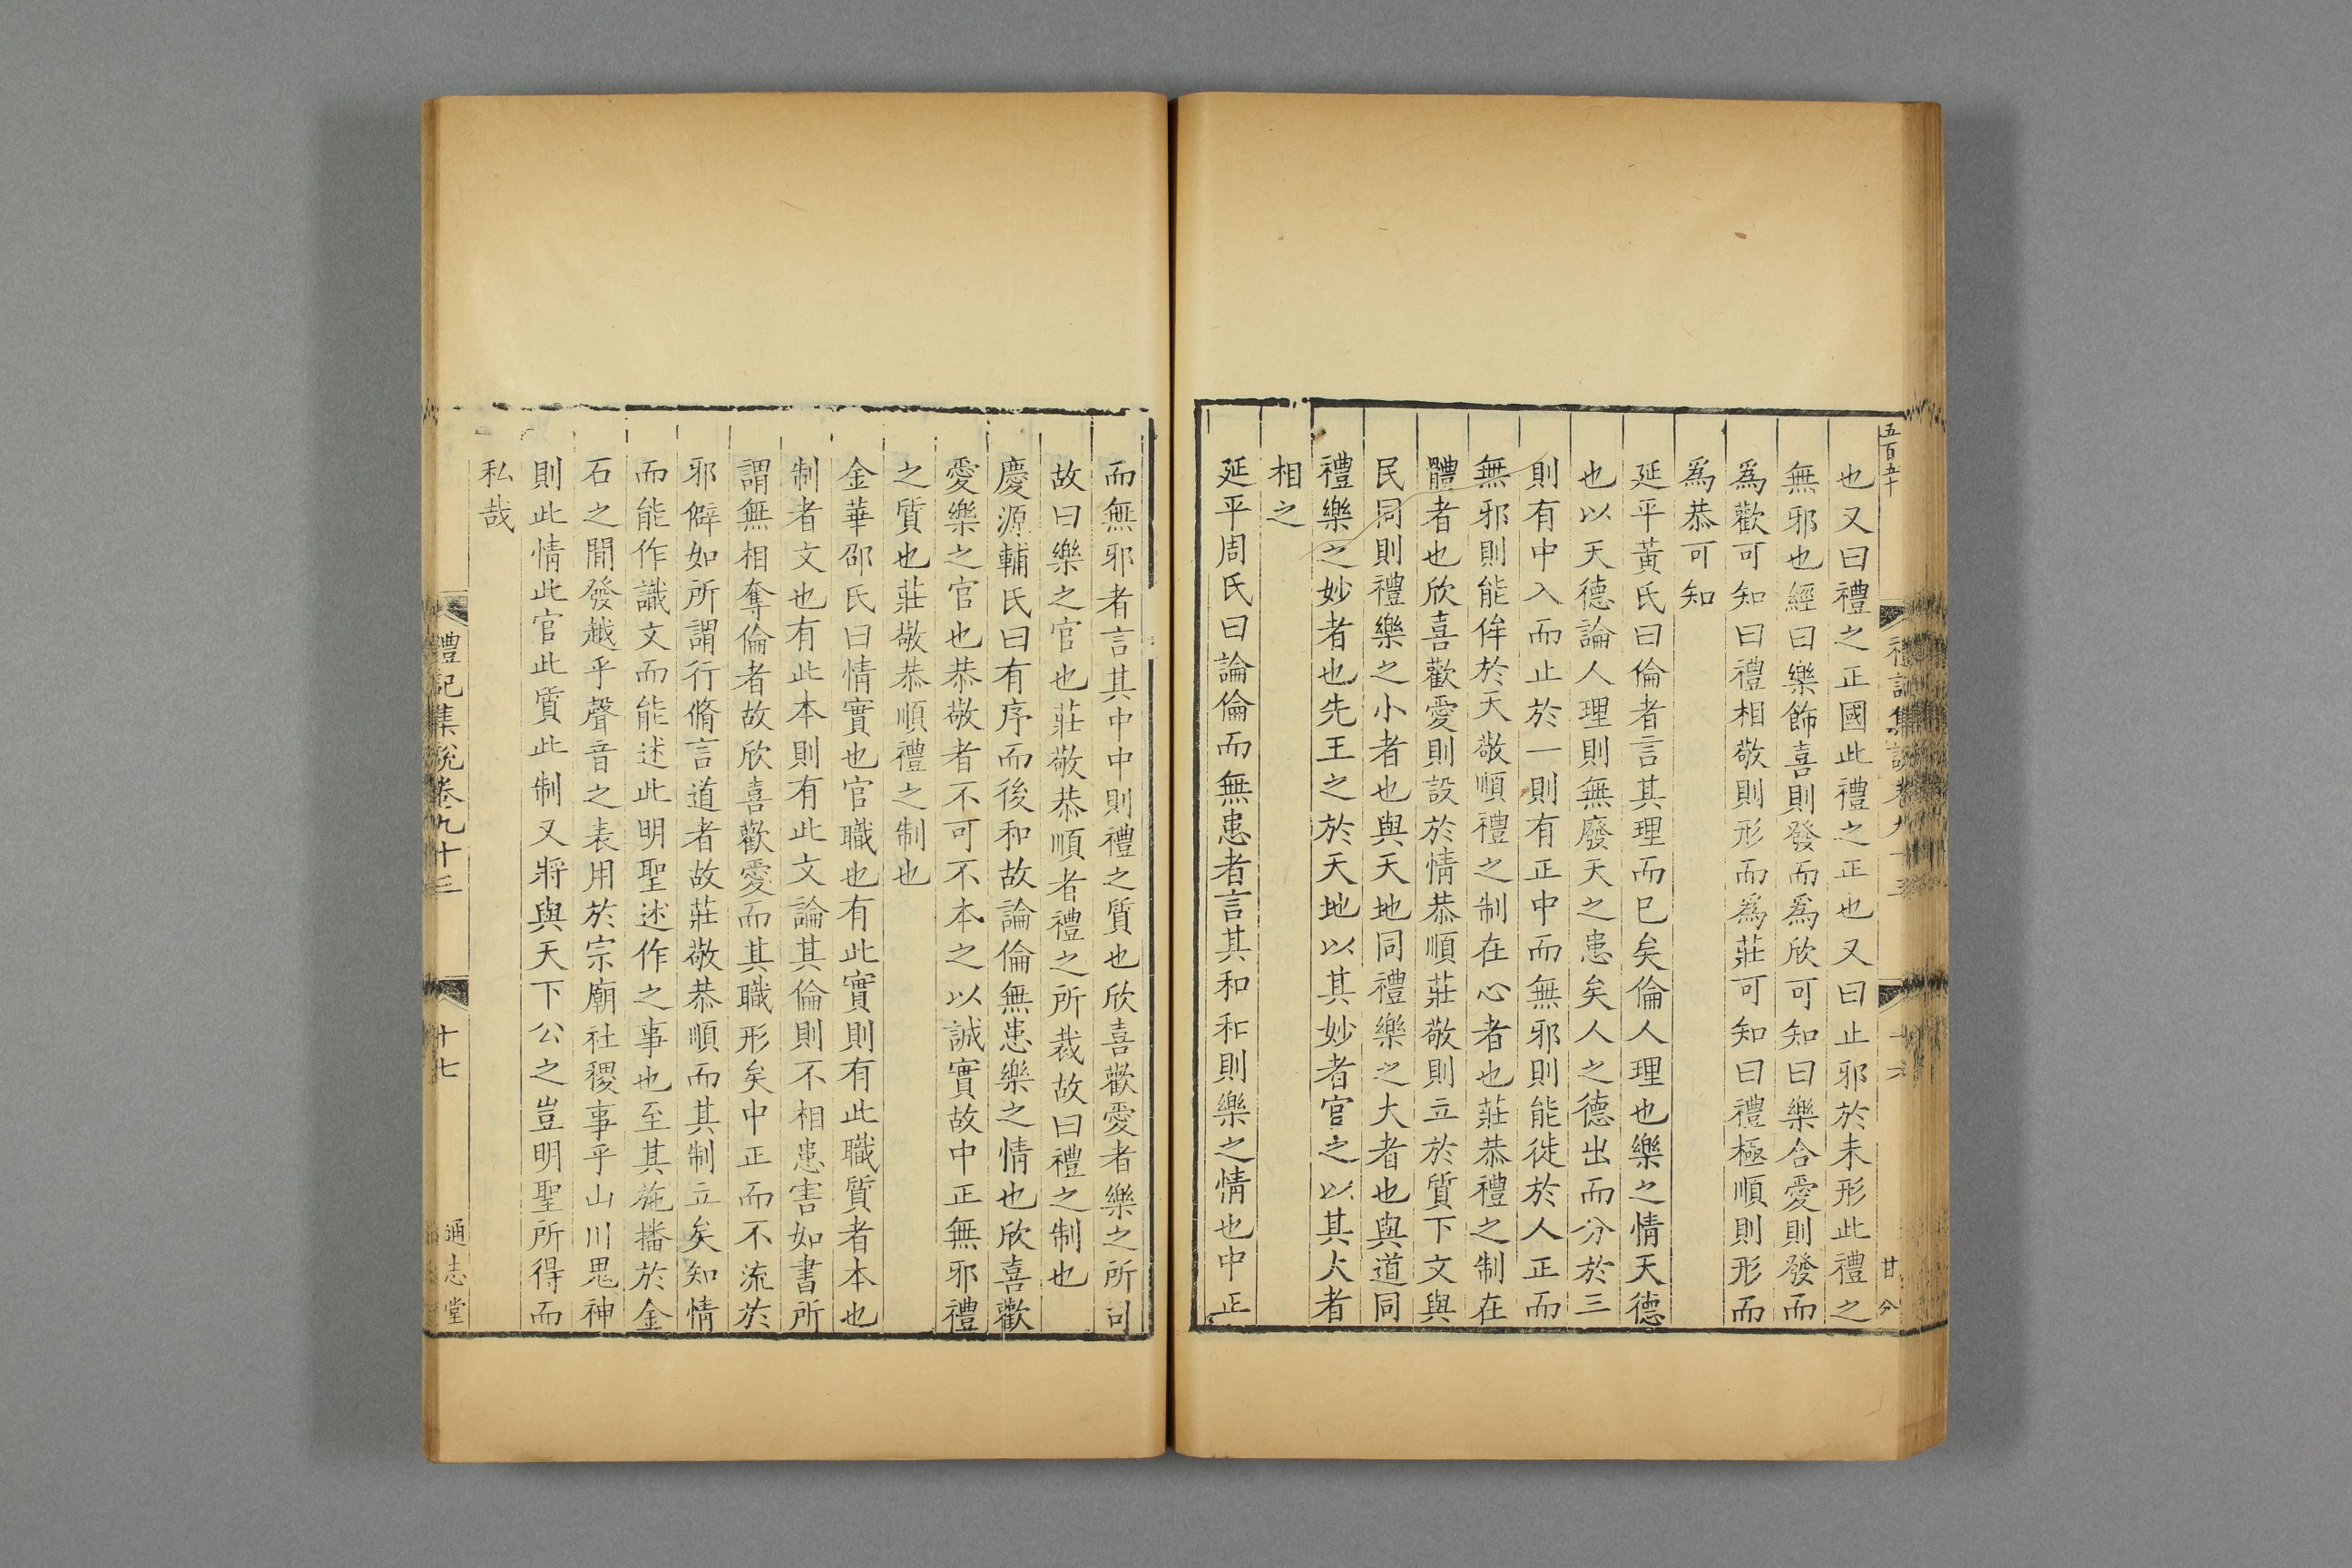 五百五十
禮記集說卷九十三
十六
甘分
也又曰禮之正國此禮之正也又曰止邪於未形此禮之
無邪也經曰樂飾喜則發而爲欣可知曰樂合愛則發而
爲歡可知曰禮相敬則形而爲莊可知曰禮極順則形而
爲恭可知
延平黃氏曰倫者言其理而已矣倫人理也樂之情天德
也以天德論人理則無廢天之患矣人之德出而分於三
則有中入而止於一則有正中而無邪則能徙於人正而
無邪則能侔於天敬順禮之制在心者也莊恭禮之制在
體者也欣喜歡愛則設於情恭順莊敬則立於質下文與
民同則禮樂之小者也與天地同禮樂之大者也與道同
禮樂之妙者也先王之於天地以其妙者官之以其大者
相之
延平周氏曰論倫而無患者言其和和則樂之情也中正
而無邪者言其中中則禮之質也欣喜歡愛者樂之所司
故曰樂之官也莊敬恭順者禮之所裁故曰禮之制也
慶源輔氏曰有序而後和故論倫無患樂之情也欣喜歡
愛樂之官也恭敬者不可不本之以誠實故中正無邪禮
之質也莊敬恭順禮之制也
金華邵氏曰情實也官職也有此實則有此職質者本也
制者文也有此本則有此文論其倫則不相患害如書所
謂無相奪倫者故欣喜歡愛而其職形矣中正而不流於
邪僻如所謂行脩言道者故莊敬恭順而其制立矣知情
而能作識文而能述此明聖述作之事也至其施播於金
石之間發越乎聲音之表用於宗廟社稷事乎山川鬼神
則此情此官此質此制又將與天下公之豈明聖所得而
私哉
禮記集說卷九十三
十七
通志堂